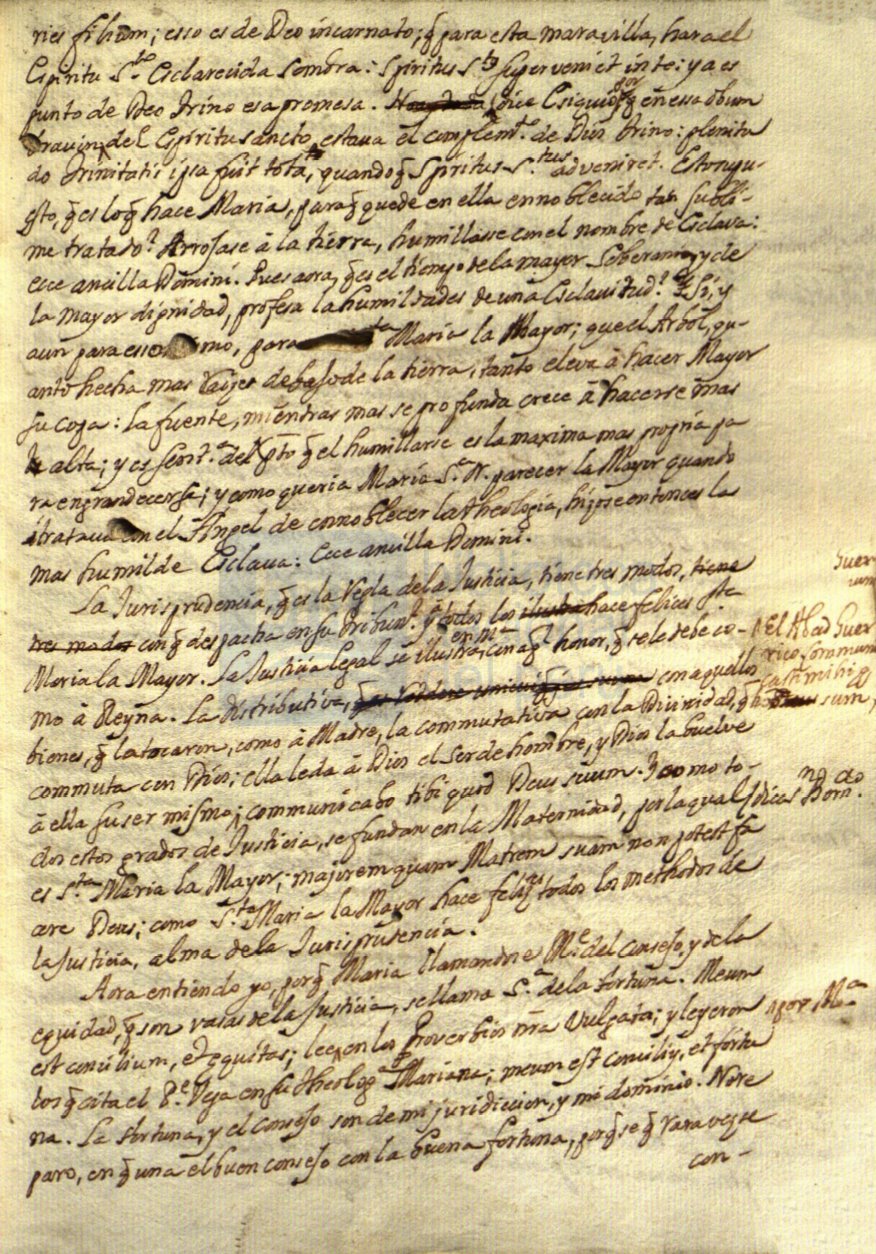 ries filium; esso es de Deo incarnato; q̃ para esta maravilla, hara el
Espiritu S.to Esclarecida Sombra: Spiritus S.ts superveniet in te: ya es
punto de Deo Trino esa promesa. dice Esiquio, por q̃ en essa obum
bracion, del Espiritu sancto, estava el complem.to de Dios Trino: plenitu
do Trinitatis ipsa fuit tota, quando q̃ Spiritus S.tus adveniret.
esto, q̃ es lo q̃ hace Maria, para q̃ quede en ella ennoblecido tan subli-
me tratado? Arrojase à la tierra, humillasse con el nombre de Esclava:
ecce ancilla Domini. Pues aora, q̃ es el tiempo de la mayor Soberania, y de
la mayor dignidad, profesa las humildades de una Esclavitud? Si, y
aun para esso mismo, para Maria la Mayor; que el Arbol, qu-
anto hecha mas Raizes debajo de la tierra, tanto eleva à hacer Mayor
su copa: la fuente, mientras mas se profunda crece à hacerse mas
alta; y es sent.a del Xpto q̃ el humillarse es la maxima mas propria pa
ra engrandecerse; y como queria Maria S.a N. parecer la Mayor quando
tratava con el Angel de ennoblecer la theologia, hizose entonces la
mas humilde Esclava: Ecce ancilla Domini.
La Jurisprudencia, q̃ es la Regla de la Justicia, tiene tres modos, tiene
tres modos con q̃ despacha en su Tribun.l y todos los ilustra hace felices Sta
Maria la Mayor. La Justicia legal se ilustra, en M.a con aq.l honor, q̃ se le debe co-
mo à Reyna. La distributiva, con aquellos
bienes, q̃ la tocaron, como à Madre, la commutativa con la Divinidad, q̃
commuta con Dios; ella le da à Dios el Ser de hombre, y Dios la buelve
à ella su ser mismo; communicabo tibi quod Deus suum. Y como to-
dos estos grados de Justicia, se fundan en la Maternidad, por la qual
es S.ta Maria la Mayor; majorem quam Matrem suam non potest fa
cere Deus; como S.ta Maria la Mayor hace feliz todos los methodos de
la Justicia, alma de la Jurisprudencia.
Aora entiendo yo, porq̃ Maria llamandose M.e del Consejo, y de la
equidad, q̃ son vasas de la Justicia, se llama S.a de la fortuna. Meum
est consilium, et equitas; lee en los Proverbios nr̃a Vulgata; y leyeron
los q̃ cita el P.e Vega en su theolog.a Mariana; meum est consiliũ, et fortu
na. La fortuna, y el consejo son de mi juridiccion, y mi dominio. No re
paro, en q̃ una el buen consejo con la buena fortuna, porq̃ se q̃ rara vez se
con-
El Abad Guer
rico
sum,
por M.a